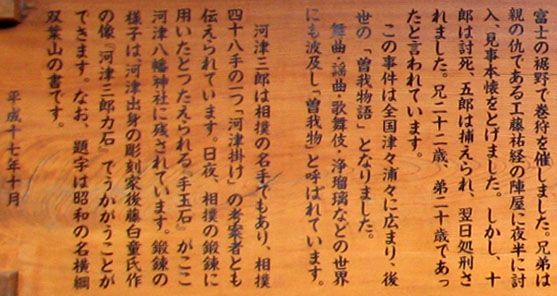 富士の裾野で巻狩を催しました。兄弟は
親の仇である工藤祐経の陣屋に夜半に討
入、見事本懐をとげました。しかし、十
郎は討死、五郎は捕えられ、翌日処刑さ
れました。兄二十二歳、弟二十歳であっ
たと言われています。
この事件は全国津々浦々に広まり、後
世の「曽我物語」となりました。
舞曲・謡曲・歌舞伎、浄瑠璃などの世界
にも波及し「曽我物」と呼ばれています。
河津三郎は相撲の名手でもあり、相撲
四十八手の一つ「河津掛け」の考案者とも
伝えられています。日夜、相撲の鍛錬に
用いたとつたえられる『手玉石』がここ
河津八幡神社に残されています。鍛錬の
様子は『河津出身の彫刻家後藤白童氏作
の像『河津三郎力石』でうかがうことが
できます。なお、題字は昭和の名横綱
双葉山の書です。
平成十七年十月